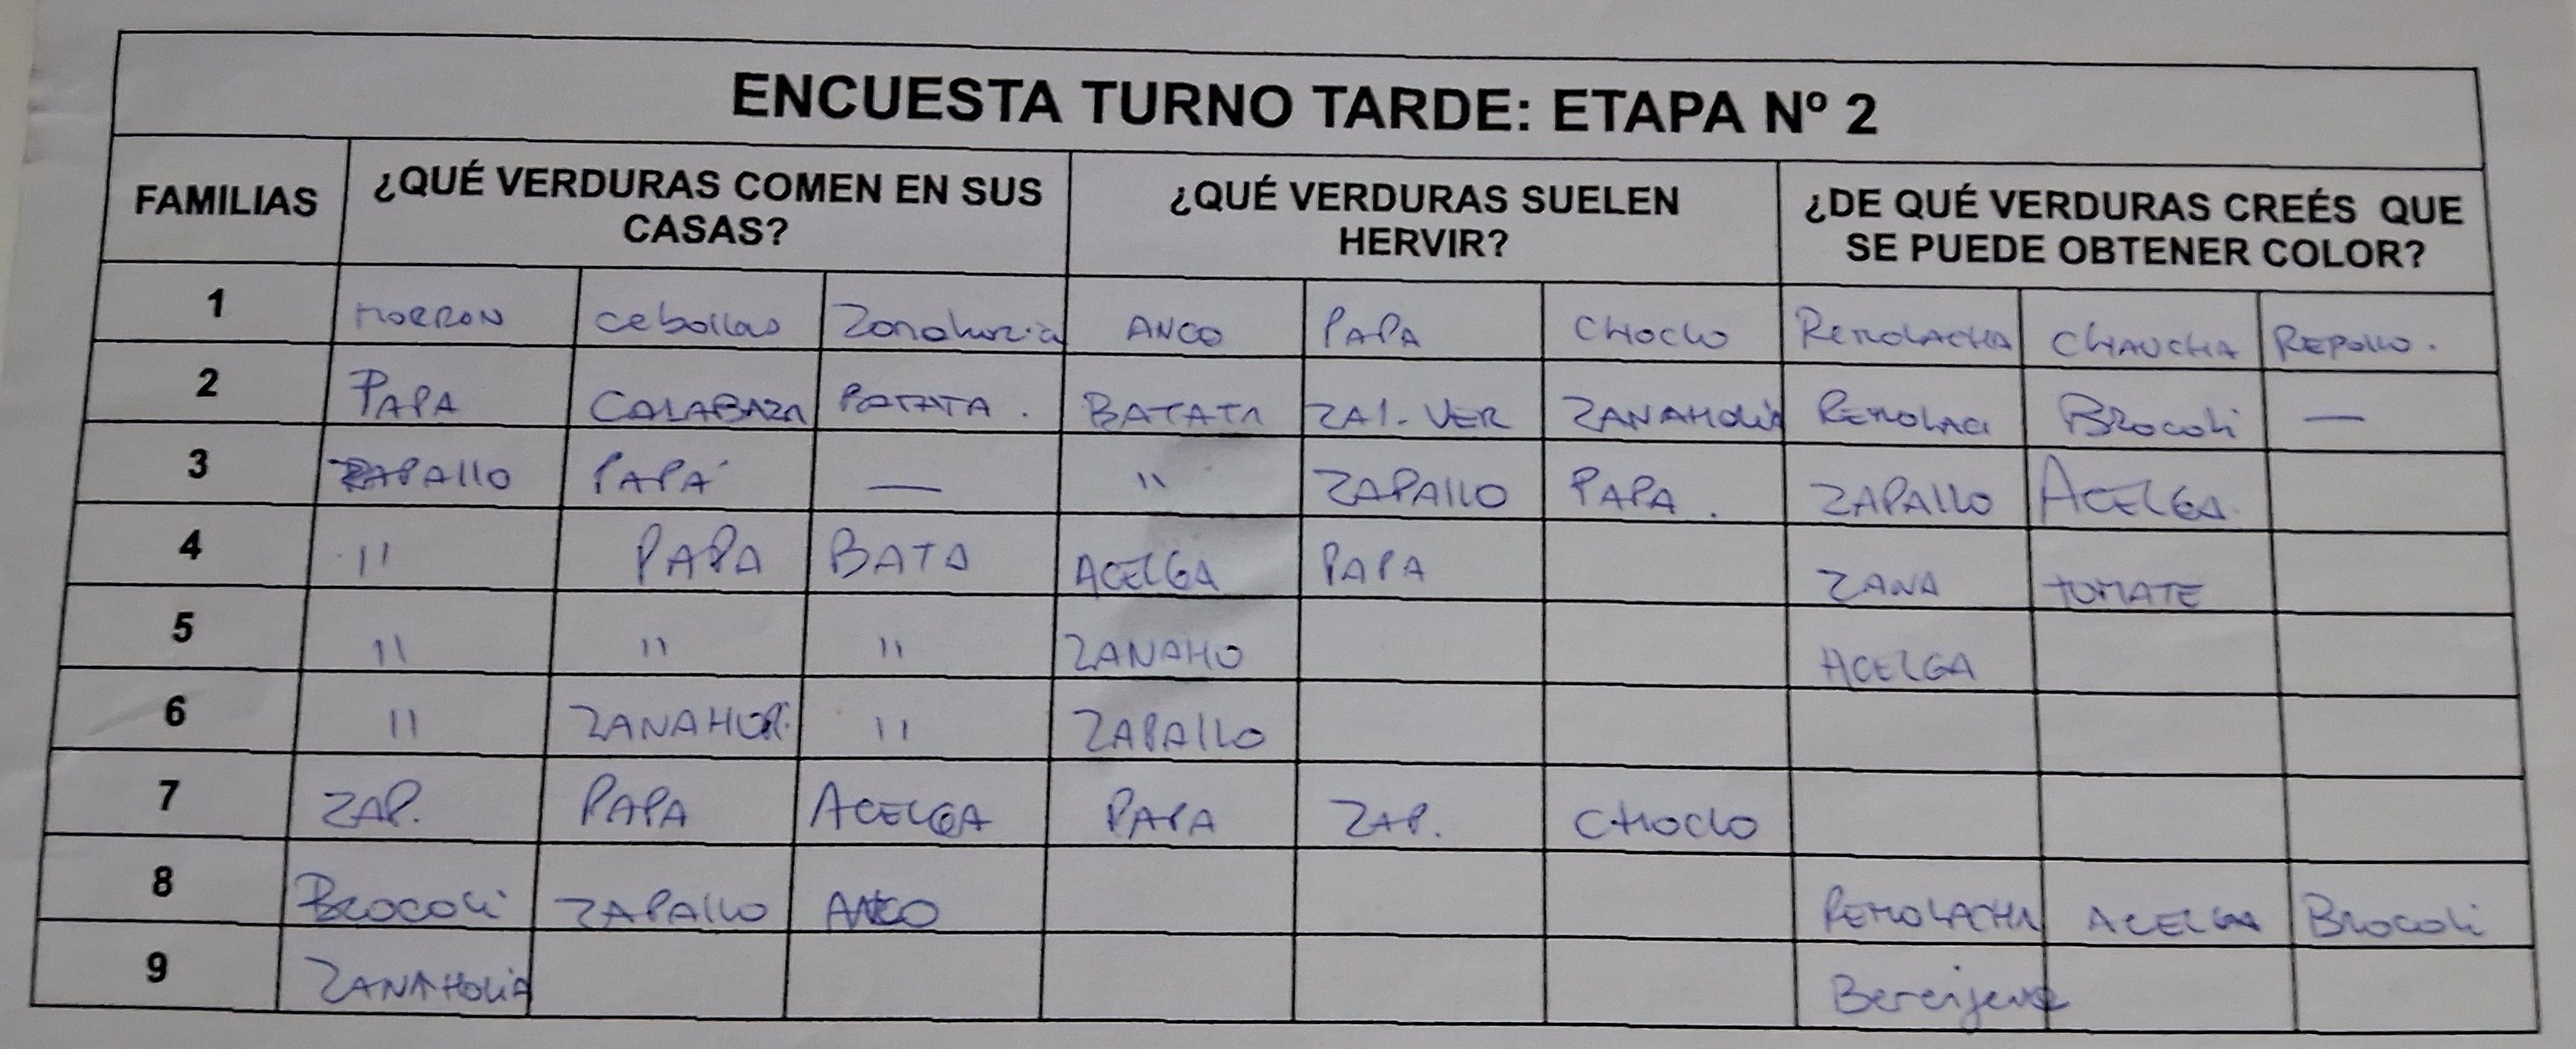 ENCUESTA TURNO TARDE: ETAPA Nº 2
FAMILIAS ¿QUÉ VERDURAS COMEN EN SUS CASAS? ¿QUÉ VERDURAS SUELEN HERVIR? ¿DE QUÉ VERDURAS CREÉS QUE SE PUEDE OBTENER COLOR?
1 MORRON cebollas Zanahoria ANCO PAPA CHOCLO REMOLACHA CHAUCHA REPOLLO.
2 PAPA CALABAZA BATATA. BATATA ZAP. VER ZANAHORIA REMOLAC BROCOLI —
3 ZAPALLO PAPA — " ZAPALLO PAPA. ZAPALLO ACELGA.
4 " PAPA BATA ACELGA PAPA ZANA TOMATE
5 " " " ZANAHO ACELGA
6 " ZANAHOR. " ZAPALLO
7 ZAP. PAPA ACELGA PAPA ZAP. CHOCLO
8 BROCOLI ZAPALLO ANCO REMOLACHA ACELGA BROCOLI
9 ZANAHORIA Berenjena